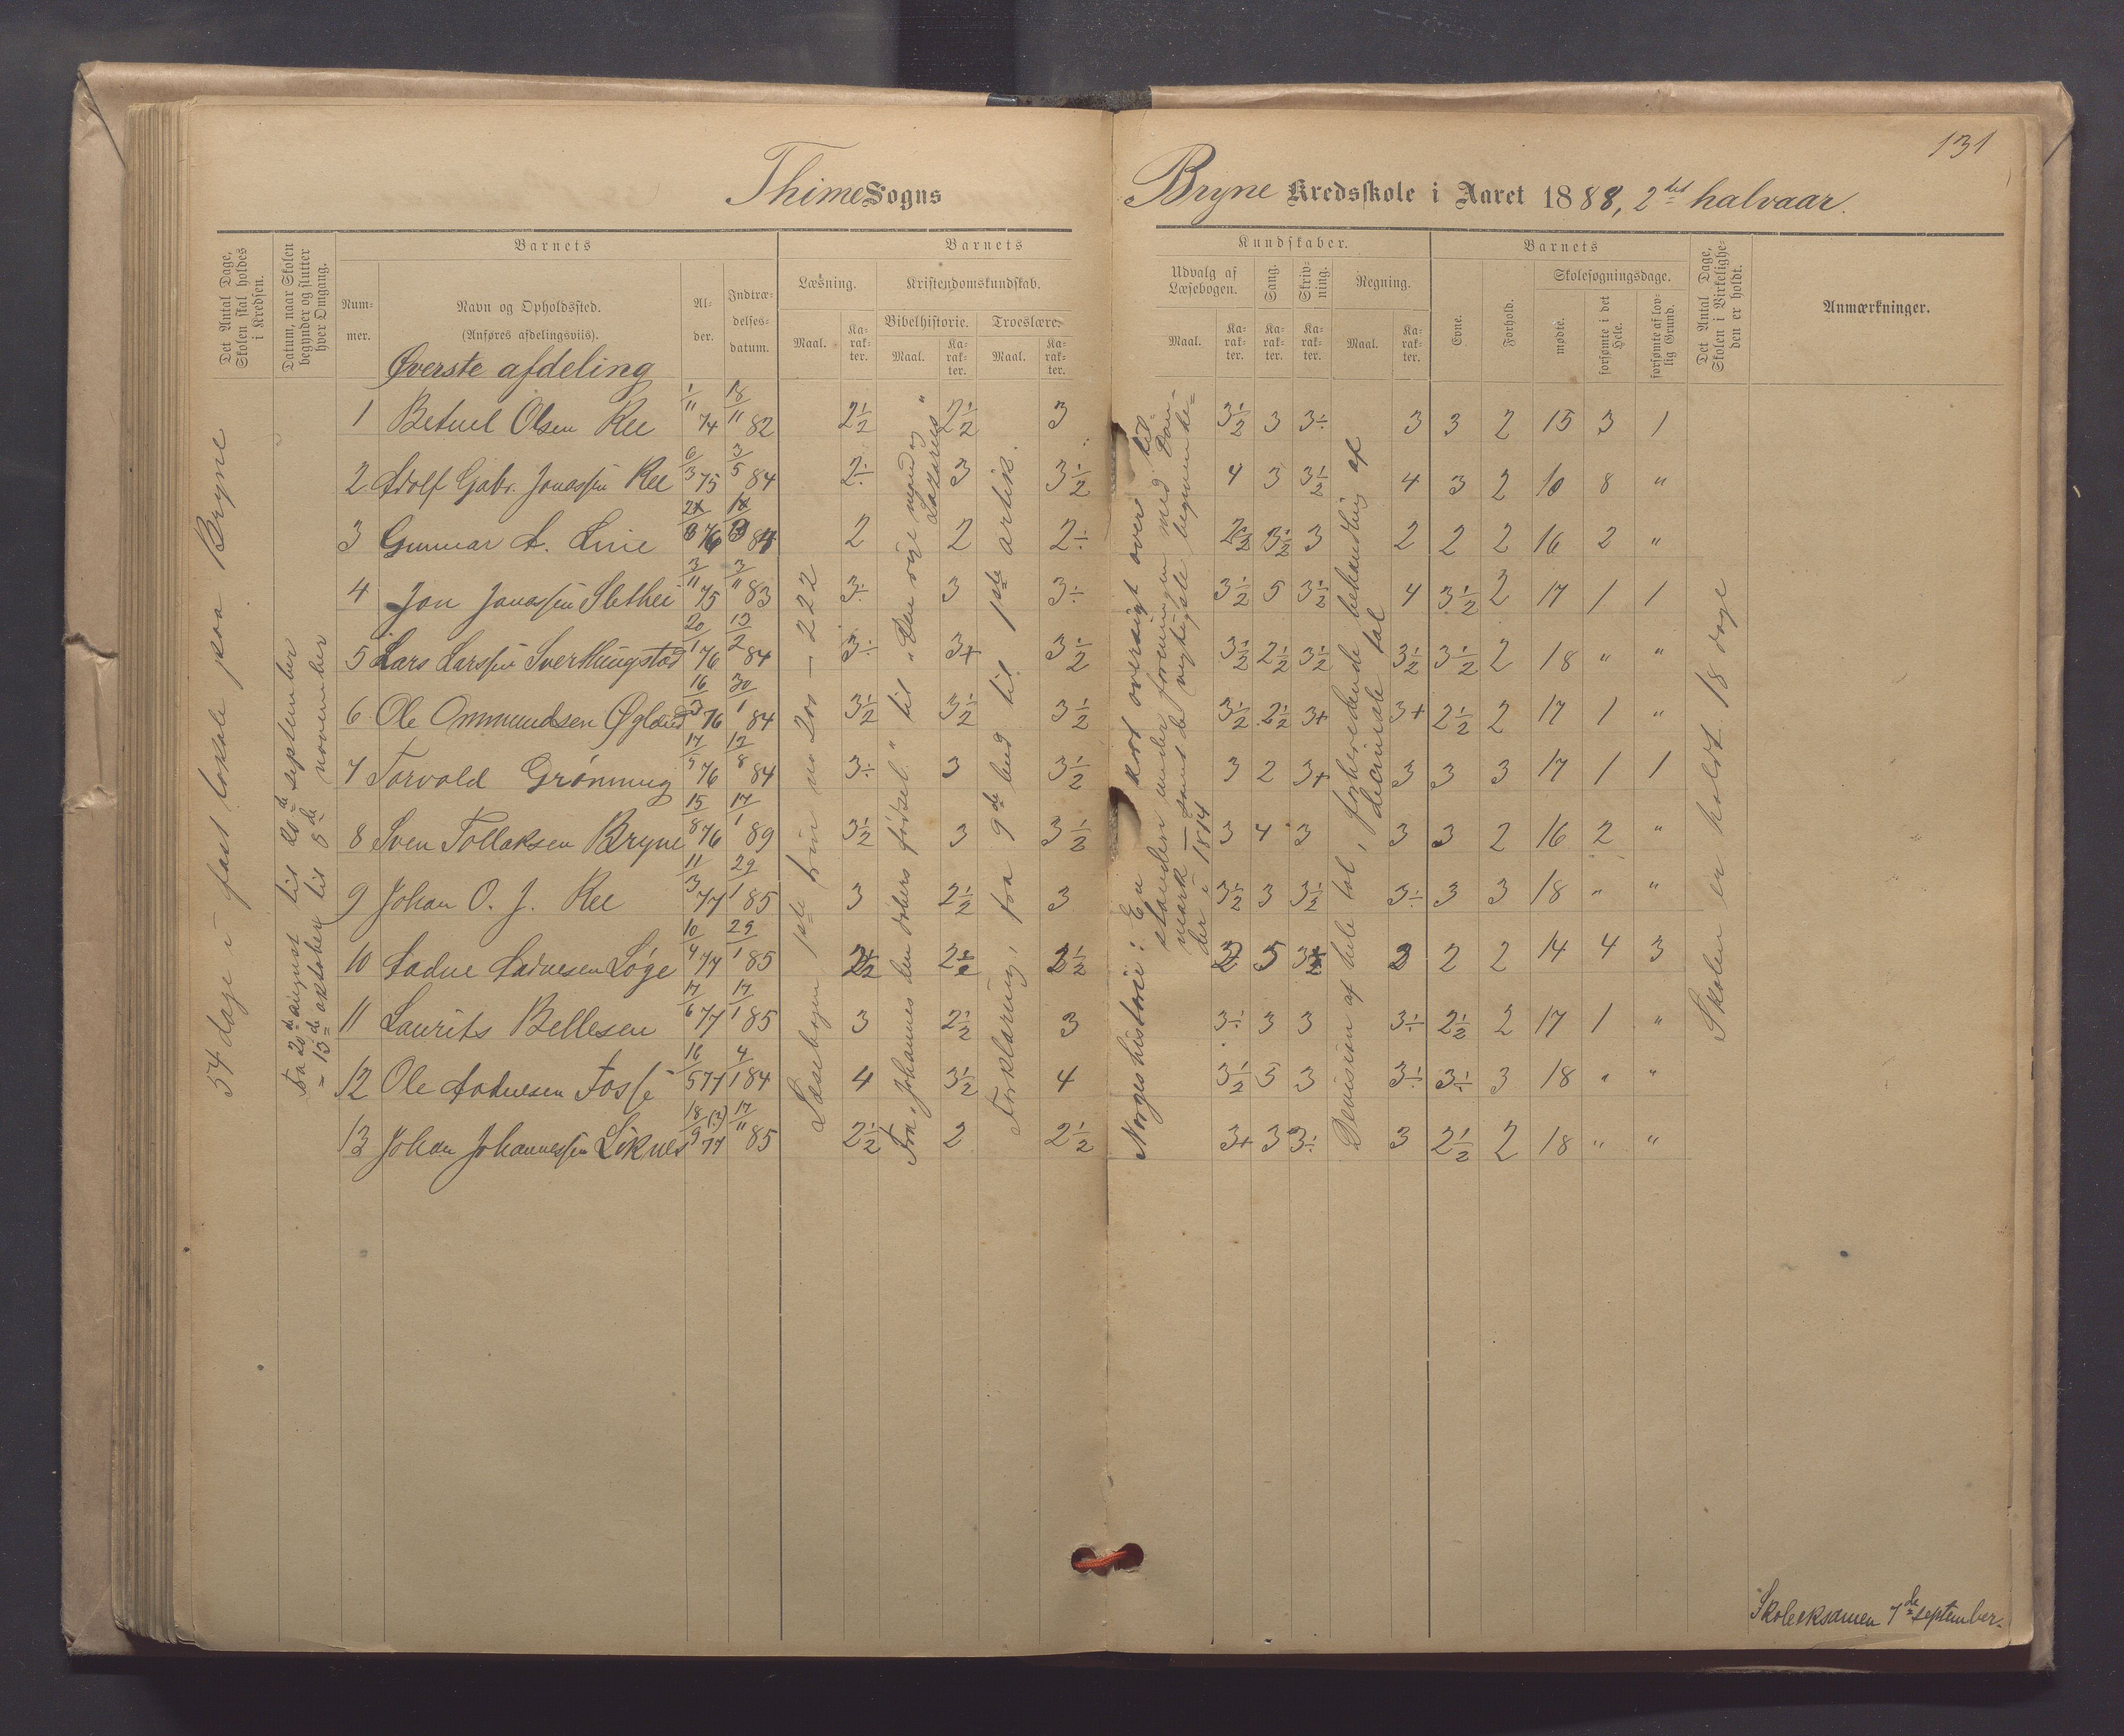 131
Thime Sogns
Bryne Kredsskole i Aaret 1888, 2det halvaar.
Det Antal Dage, Skolen skal holdes i Kredsen.
Datum, naar Skolen begynder og slutter hver Omgang.
Barnets
Barnets
Kundskaber.
Barnets
Det Antal Dage, Skolen i Virkeligheden er holdt.
Anmærkninger.
Nummer.
Navn og Opholdssted.
(Anføres afdelingsviis).
Alder.
Indtrædelsesdatum.
Læsning.
Kristendomskundskab.
Bibelhistorie.
Troeslære.
Udvalg af Læsebogen.
Sang.
Skrivning.
Regning.
Evne.
Forhold.
Skolesøgningsdage.
Maal.
Karakter.
Maal.
Karakter.
Maal.
Karakter.
Maal.
Karakter.
Karakter.
Karakter.
Maal.
Karakter.
mødte.
forsømte i det Hele.
forsømte af lovlig Grund.
Øverste afdeling
1 Betuel Olsen Ree 1/11 74 18/11 82 2½ 2½ 3 3½ 3 3÷ 3 3 2 15 3 1
2 Adolf Gabr. Jonassen Ree 6/3 75 3/5 84 2÷ 3 3½ 4 3 3½ 4 3 2 10 8 "
3 Gunnar A. Line 76 84 2 2 2÷ 2½ 3½ 3 2 2 2 16 2 "
4 Jon Jonassen Slethei 3/11 75 3/11 83 3÷ 3 3÷ 3½ 5 3½ 4 3½ 2 17 1 1
5 Lars Larssen Sverthingstad 20/1 76 13/2 84 3÷ 3+ 3½ 3½ 2½ 3½ 3½ 3½ 2 18 " "
6 Ole Ommundsen Øglænd 16/3 76 30/1 84 3½ 3½ 3½ 3½ 2½ 3+ 3+ 2½ 2 17 1 "
7 Torvald Grønning 17/5 76 12/8 84 3÷ 3 3½ 3 2 3+ 3 3 3 17 1 1
8 Sven Tollaksen Bryne 15/8 76 17/1 89 3½ 3 3½ 3 4 3 3 3 2 16 2 "
9 Johan O. J. Ree 11/3 77 29/1 85 3 2½ 3 3½ 3 3½ 3÷ 3 3 18 " "
10 Aadne Aadnesen Løge 10/4 77 29/1 85 2½ 2½ 2½ 2 5 3½ 3 2 2 14 4 3
11 Laurits Bellesen 17/6 77 17/1 85 3 2½ 3 3÷ 3 3 3÷ 2½ 2 17 1 "
12 Ole Aadnesen Fosse 16/5 77 4/1 84 4 3½ 4 3½ 5 3 3÷ 3÷ 3 18 " "
13 Johan Johannessen Liknes 18/9 (3) 77 17/11 85 2½ 2 2½ 3+ 3 3÷ 3 2½ 2 18 " "
54 dage i fast lokale paa Bryne
Fra 20de august til 20de september
= 15de oktober til 5de november
Læsebogen 1ste trin no 200 — 222
Fra "Johannes den døbers fødsel" til "Den rige mand og Lazarus"
Forklaring, fra 9de bud til 1ste artik.
Norgeshistorie: En kort oversigt over tilstanden under foreningen med Danmark — samt de vigtigste begivenheder i 1814
Devision af hele tal, forberedende behandling af decimale tal
Skolen er holdt 18 dage
Skoleeksamen 7de september.